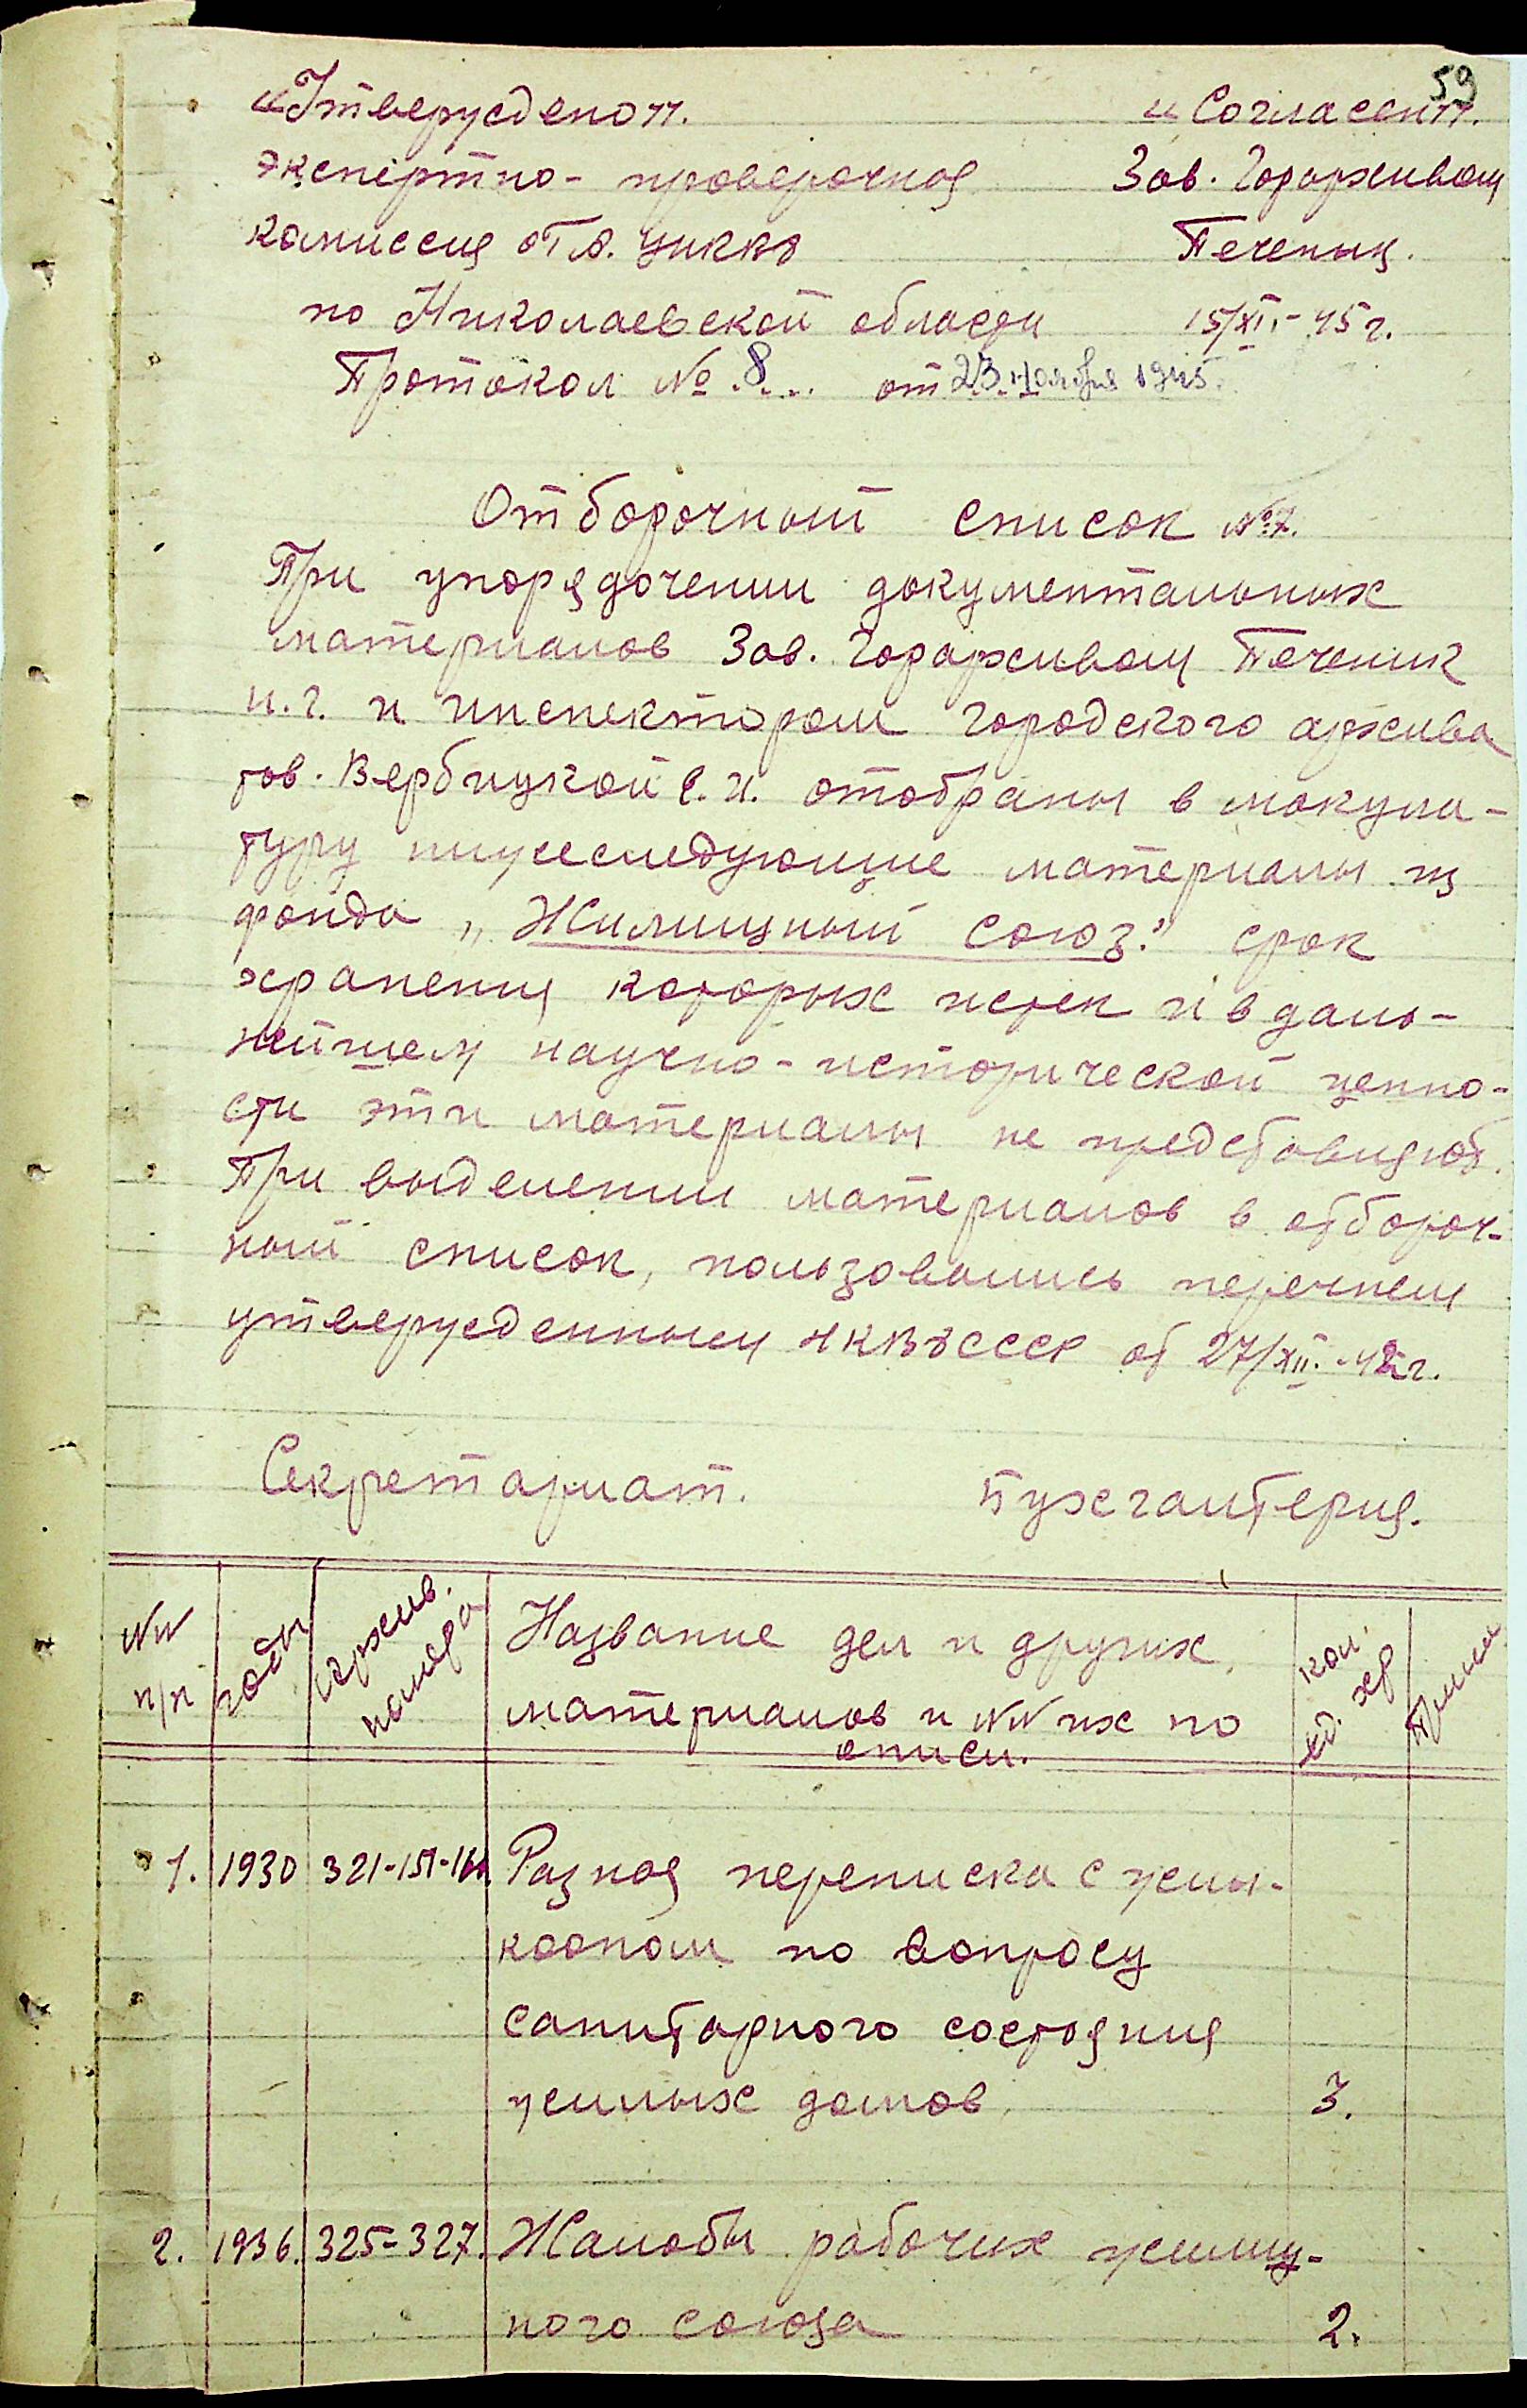 59
„Утверждено".
экспертно-проверочная
комиссия от А. УНКВД
по Николаевской области
Протокол № 8 от 23 ноября 1945.
„Согласен".
Зав. Горархивом
Печеник.
15/XI-45г.
Отборочный список №7.
При упорядочении документальных
материалов Зав. Горархивом Печеник
и.г. и инспектором городского архива
тов. Вербицкой Е.И. отобраны в макула-
туру нижеследующие материалы из
фонда „Жилищный союз." срок
хранения которых истек и в даль-
нейшем научно-исторической ценно-
сти эти материалы не представляют.
При выделении материалов в отбороч-
ный список, пользовались перечнем
утвержденным НКВД СССР от 27/XII-42г.
Секретариат. Бухгалтерия.
NN п/п
годы
Архив. номера
Название дел и других
материалов и NN их по
описи.
кол. ед. хр
Прим
1. 1930 321-151-164. Разная переписка с жил-
коопом по вопросу
санитарного состояния
жилых домов 3.
2. 1936. 325-327. Жалобы рабочих жилищ-
ного союза 2.